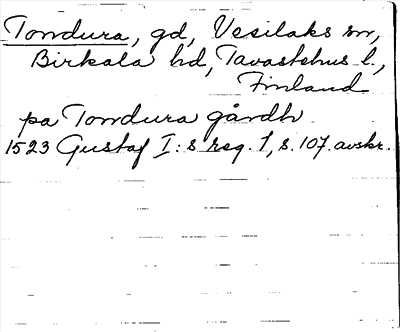 Tondura, gd, Vesilaks sn,
Birkala hd, Tavastehus l.,
Finland
pa Tondura gårdh
1523 Gustaf I:s reg. 1, s. 107. avskr.